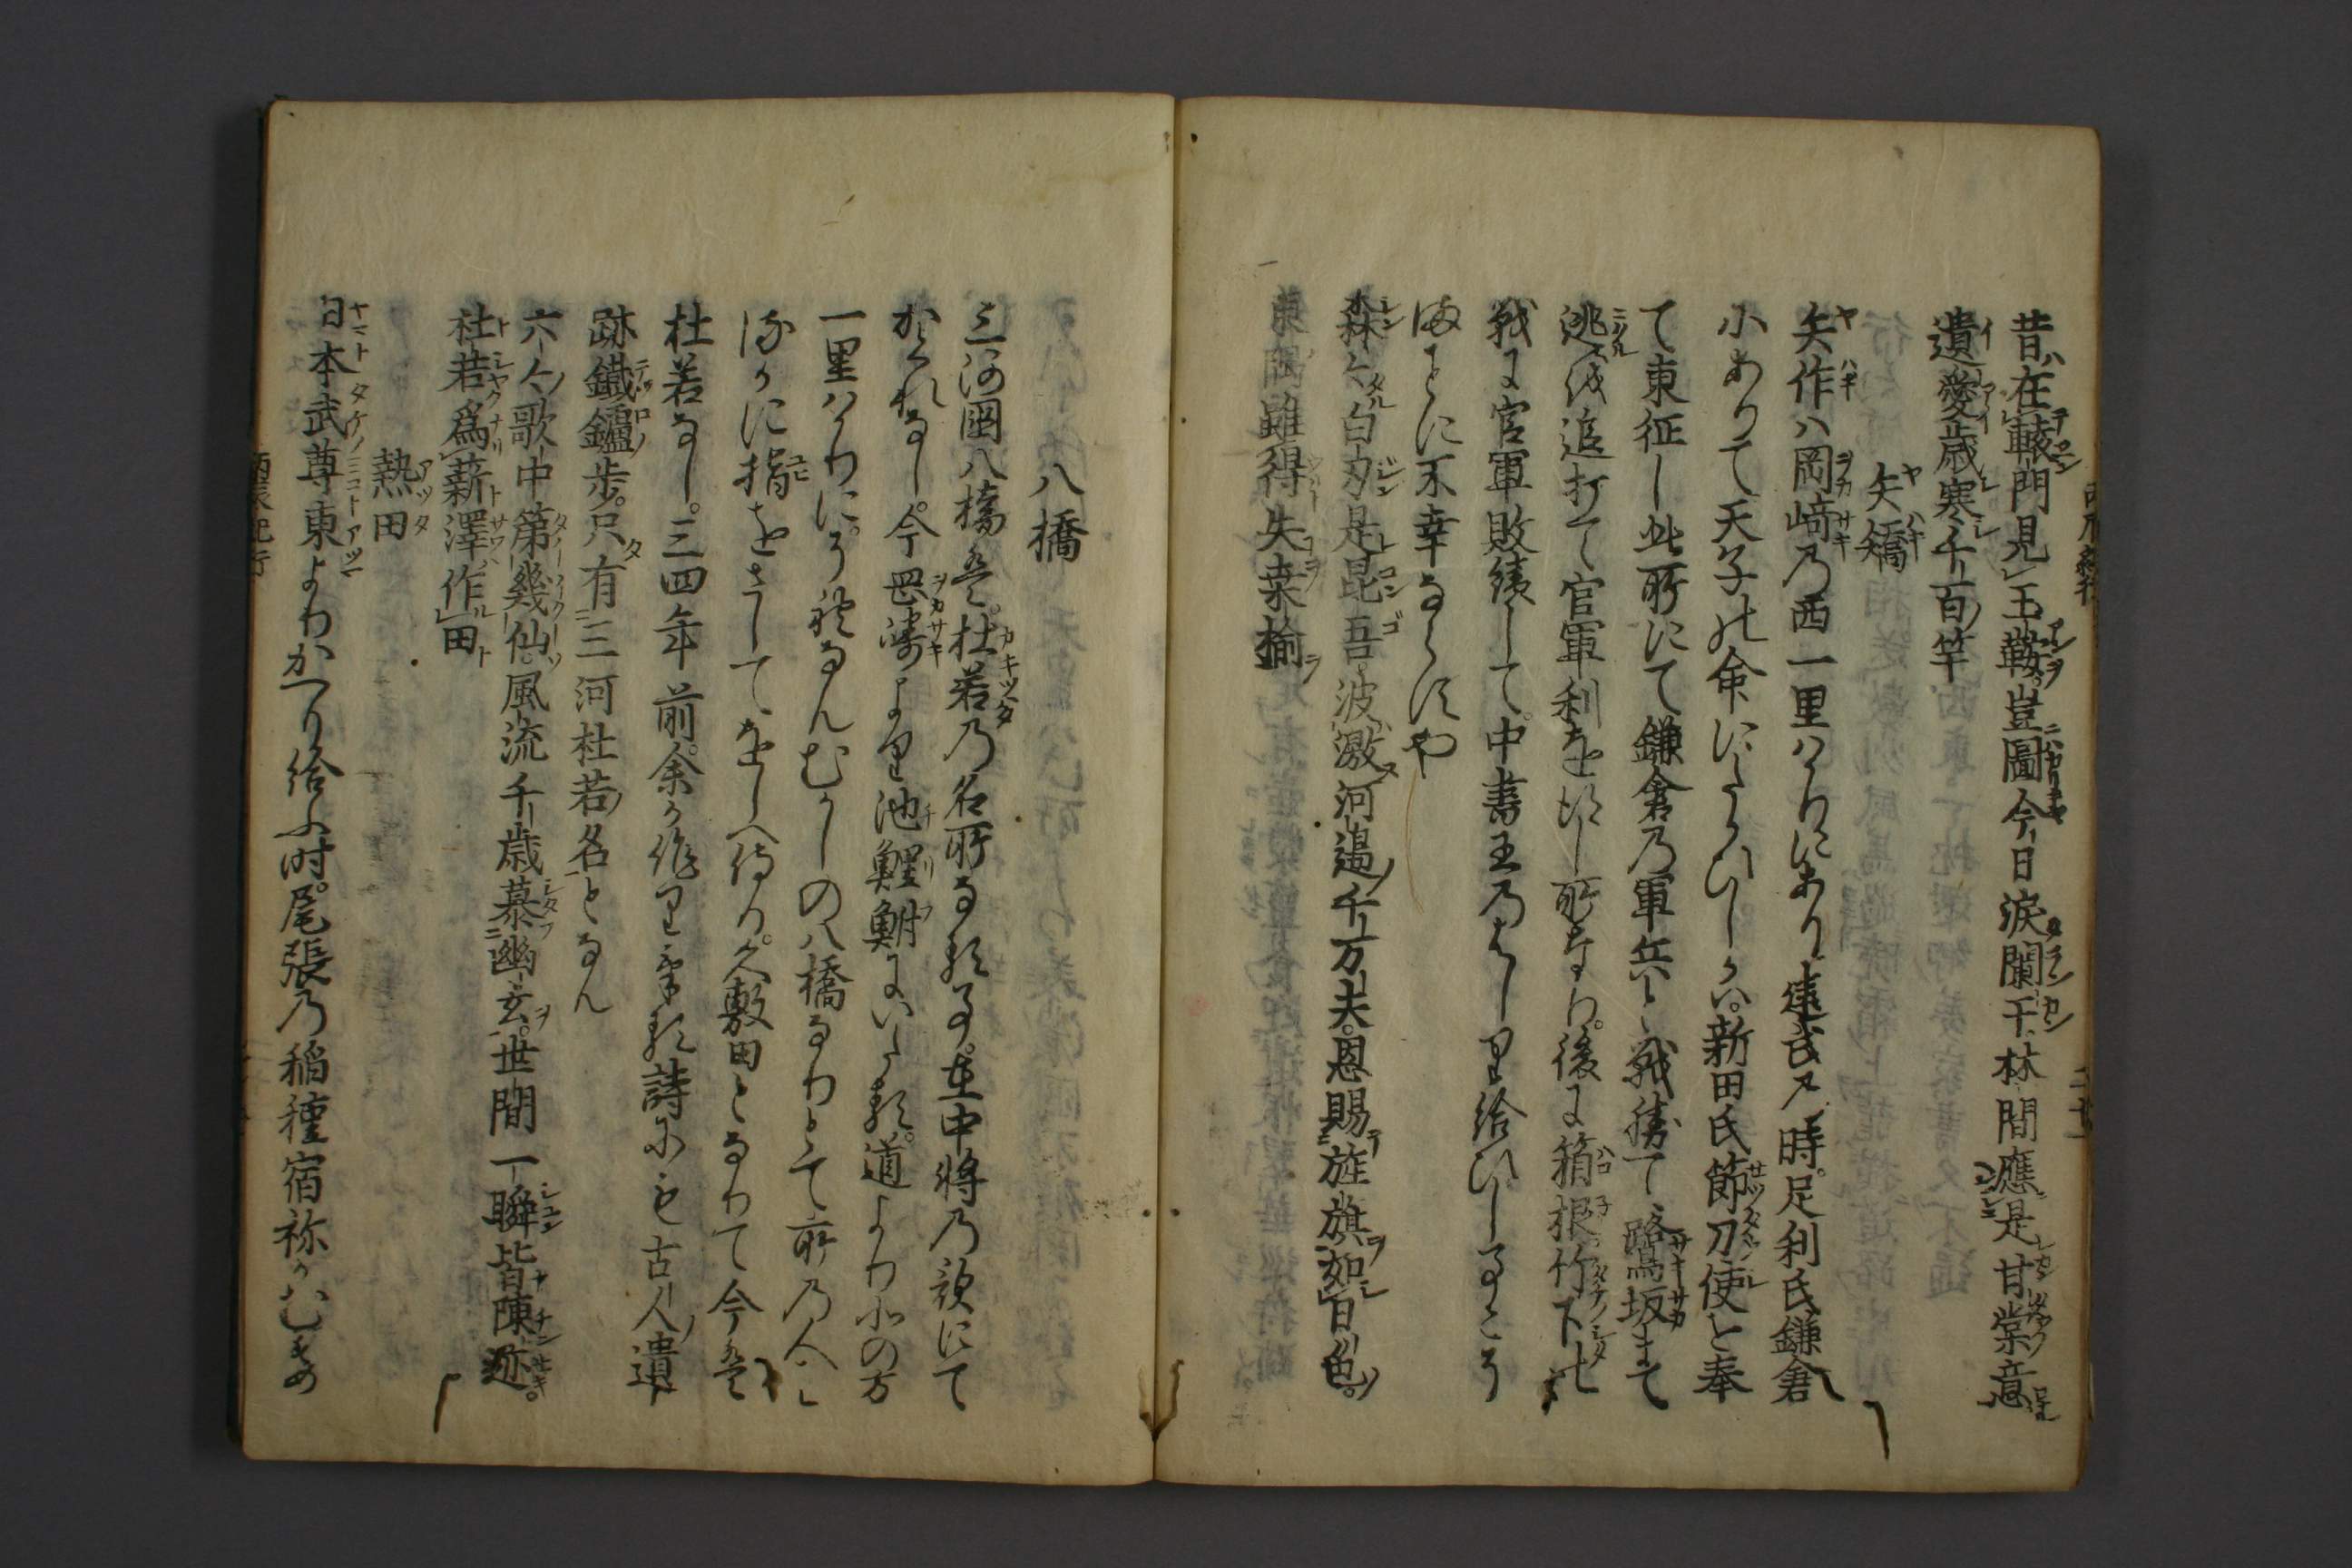 昔在轅門見玉鞍豈圖今日涙闌干林間應是甘棠意
遺愛歳寒千百竿
矢矯
矢作ハ岡﨑乃西一里はかりにあり建武乃時足利氏鎌倉
にありて天子の命にしたかひしかハ新田氏節刀使を奉
て東征し此所にて鎌倉乃軍兵と戰勝て鷺坂まて
逃るを追打て官軍利を得し所なり後に箱根竹下の
戰に官軍敗績して中書王乃はしり給ひしことこそ
まことに不幸ならすや
森々白刃是昆吾波激河邉千万夫恩賜旌旗如日色
東隅雖得失桒楡
八橋
三河國八橋は杜若乃名所なる事在中將乃歌にて
かくれなし今岡﨑より池鯉鮒にいたる道より北の方
一里はかりにそれなんむかしの八橋なりとて所乃人
はるかに指をさしてをしへ侍り久敷田となりて今は
杜若なし三四年前余か作りける詩にも古人遺
跡鐵鑪歩只有三河杜若名となん
六々歌中第幾仙風流千歳慕幽玄世間一瞬皆陳迹
杜若爲薪澤作田
熱田
日本武尊東よりかへり給ふ時尾張乃稲種宿祢かむすめ